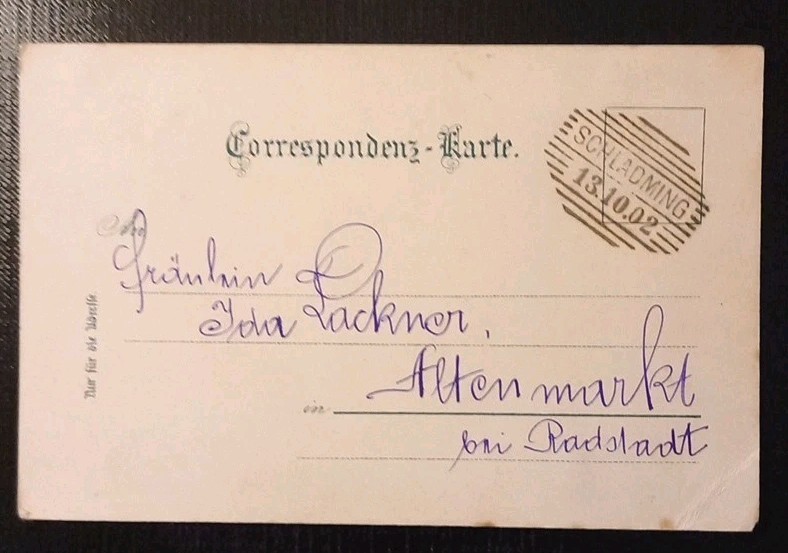 Correspondenz-Karte.
SCHLADMING
13.10.02
An
Fräulein
Ida Lackner,
Altenmarkt
in
bei Radstadt
Nur für die Adresse.